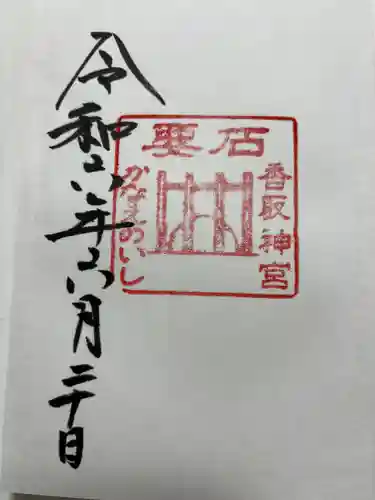 令和六年六月二十日
要石
香取神宮
かなめのいし